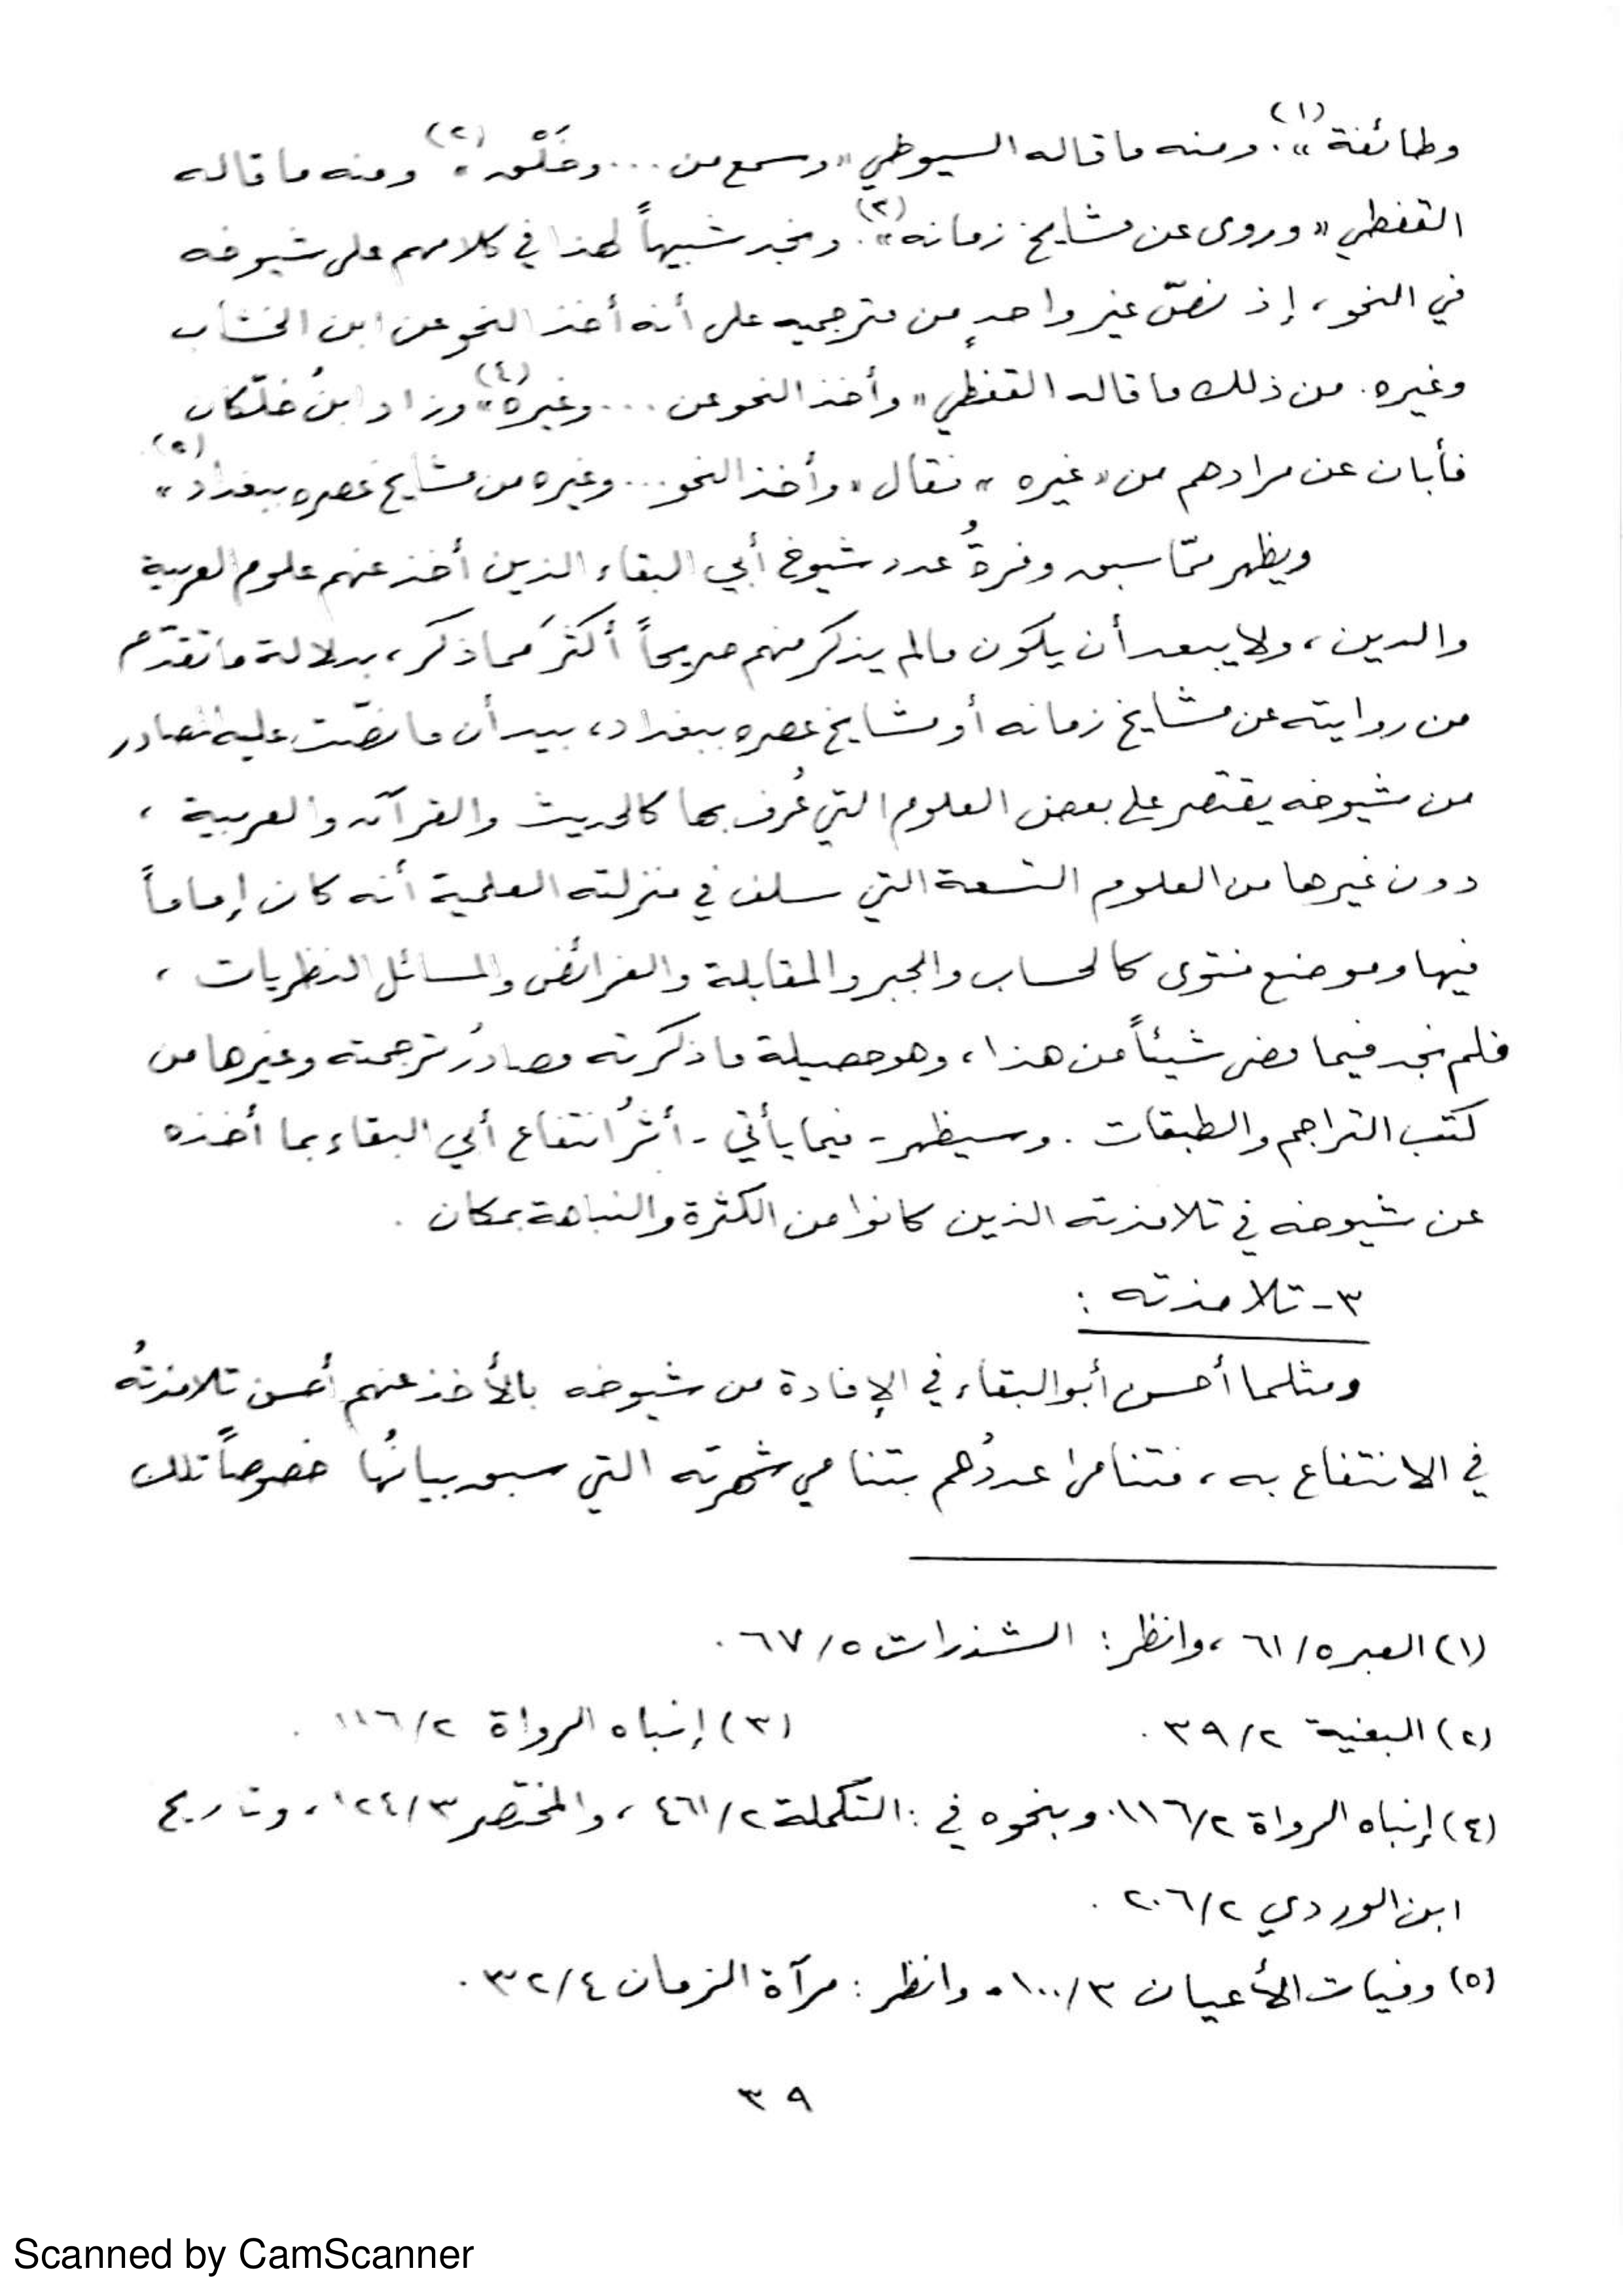 وطائفة»(١). ومنه ما قاله السيوطي «وسمع من ... وخَلْق»(٢) ومنه ما قاله
القفطي «وروى عن مشايخ زمانه»(٣). ونجد شبيهاً لهذا في كلامهم على شيوخه
في النحو، إذ نصّ غير واحدٍ من مترجميه على أنه أخذ النحو عن ابن الخشاب
وغيره. من ذلك ما قاله القفطي «وأخذ النحو عن ... وغيرُه»(٤) وزاد ابنُ خلّكان
فأبان عن مرادهم من «غيره» فقال «وأخذ النحو ... وغيره من مشايخ عصره ببغداد»(٥)
ويظهر ممّا سبق وفرةُ عدد شيوخ أبي البقاء الذين أخذ عنهم علوم العربية
والدين، ولا يبعد أن يكون مالم يذكر منهم صريحاً أكثرَ مما ذكر، بدلالة ما تقدّم
من روايته عن مشايخ زمانه أو مشايخ عصره ببغداد، بيد أن ما نصّت عليه المصادر
من شيوخه يقتصر على بعض العلوم التي عُرف بها كالحديث والقرآن والعربية،
دون غيرها من العلوم التسعة التي سلف في منزلته العلمية أنه كان إماماً
فيها وموضع فتوى كالحساب والجبر والمقابلة والفرائض والمسائل النظريات،
فلم نجد فيما مضى شيئاً من هذا، وهو حصيلة ما ذكرته مصادرُ ترجمته وغيرها من
كتب التراجم والطبقات. وسيظهر - فيما يأتي - أثرُ انتفاع أبي البقاء بما أخذه
عن شيوخه في تلامذته الذين كانوا من الكثرة والنباهة بمكان.
٣- تلامذته:
ومثلما أحسن أبو البقاء في الإفادة من شيوخه بالأخذ عنهم أحسن تلامذتُه
في الانتفاع به، فتنامى عددُهم بتنامي شهرته التي سبق بيانُها خصوصاً تلك
(١) العبر ٥/٦١، وانظر: الشذرات ٥/٦٧.
(٢) البغية ٢/٣٩. (٣) إنباه الرواة ٢/١١٦.
(٤) إنباه الرواة ٢/١١٦. وبنحوه في: التكملة ٢/٤٦١، والمختصر ٣/١٢٤، وتاريخ
ابن الوردي ٢/٢٠٦.
(٥) وفيات الأعيان ٣/١٠٠. وانظر: مرآة الزمان ٤/٣٢.
٣٩
Scanned by CamScanner